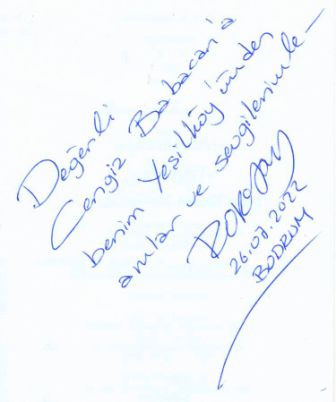 Değerli
Cengiz Babacan'a
benim Yeşilköy'ümden
anılar ve sevgilerimle-
26.07.2022
BODRUM